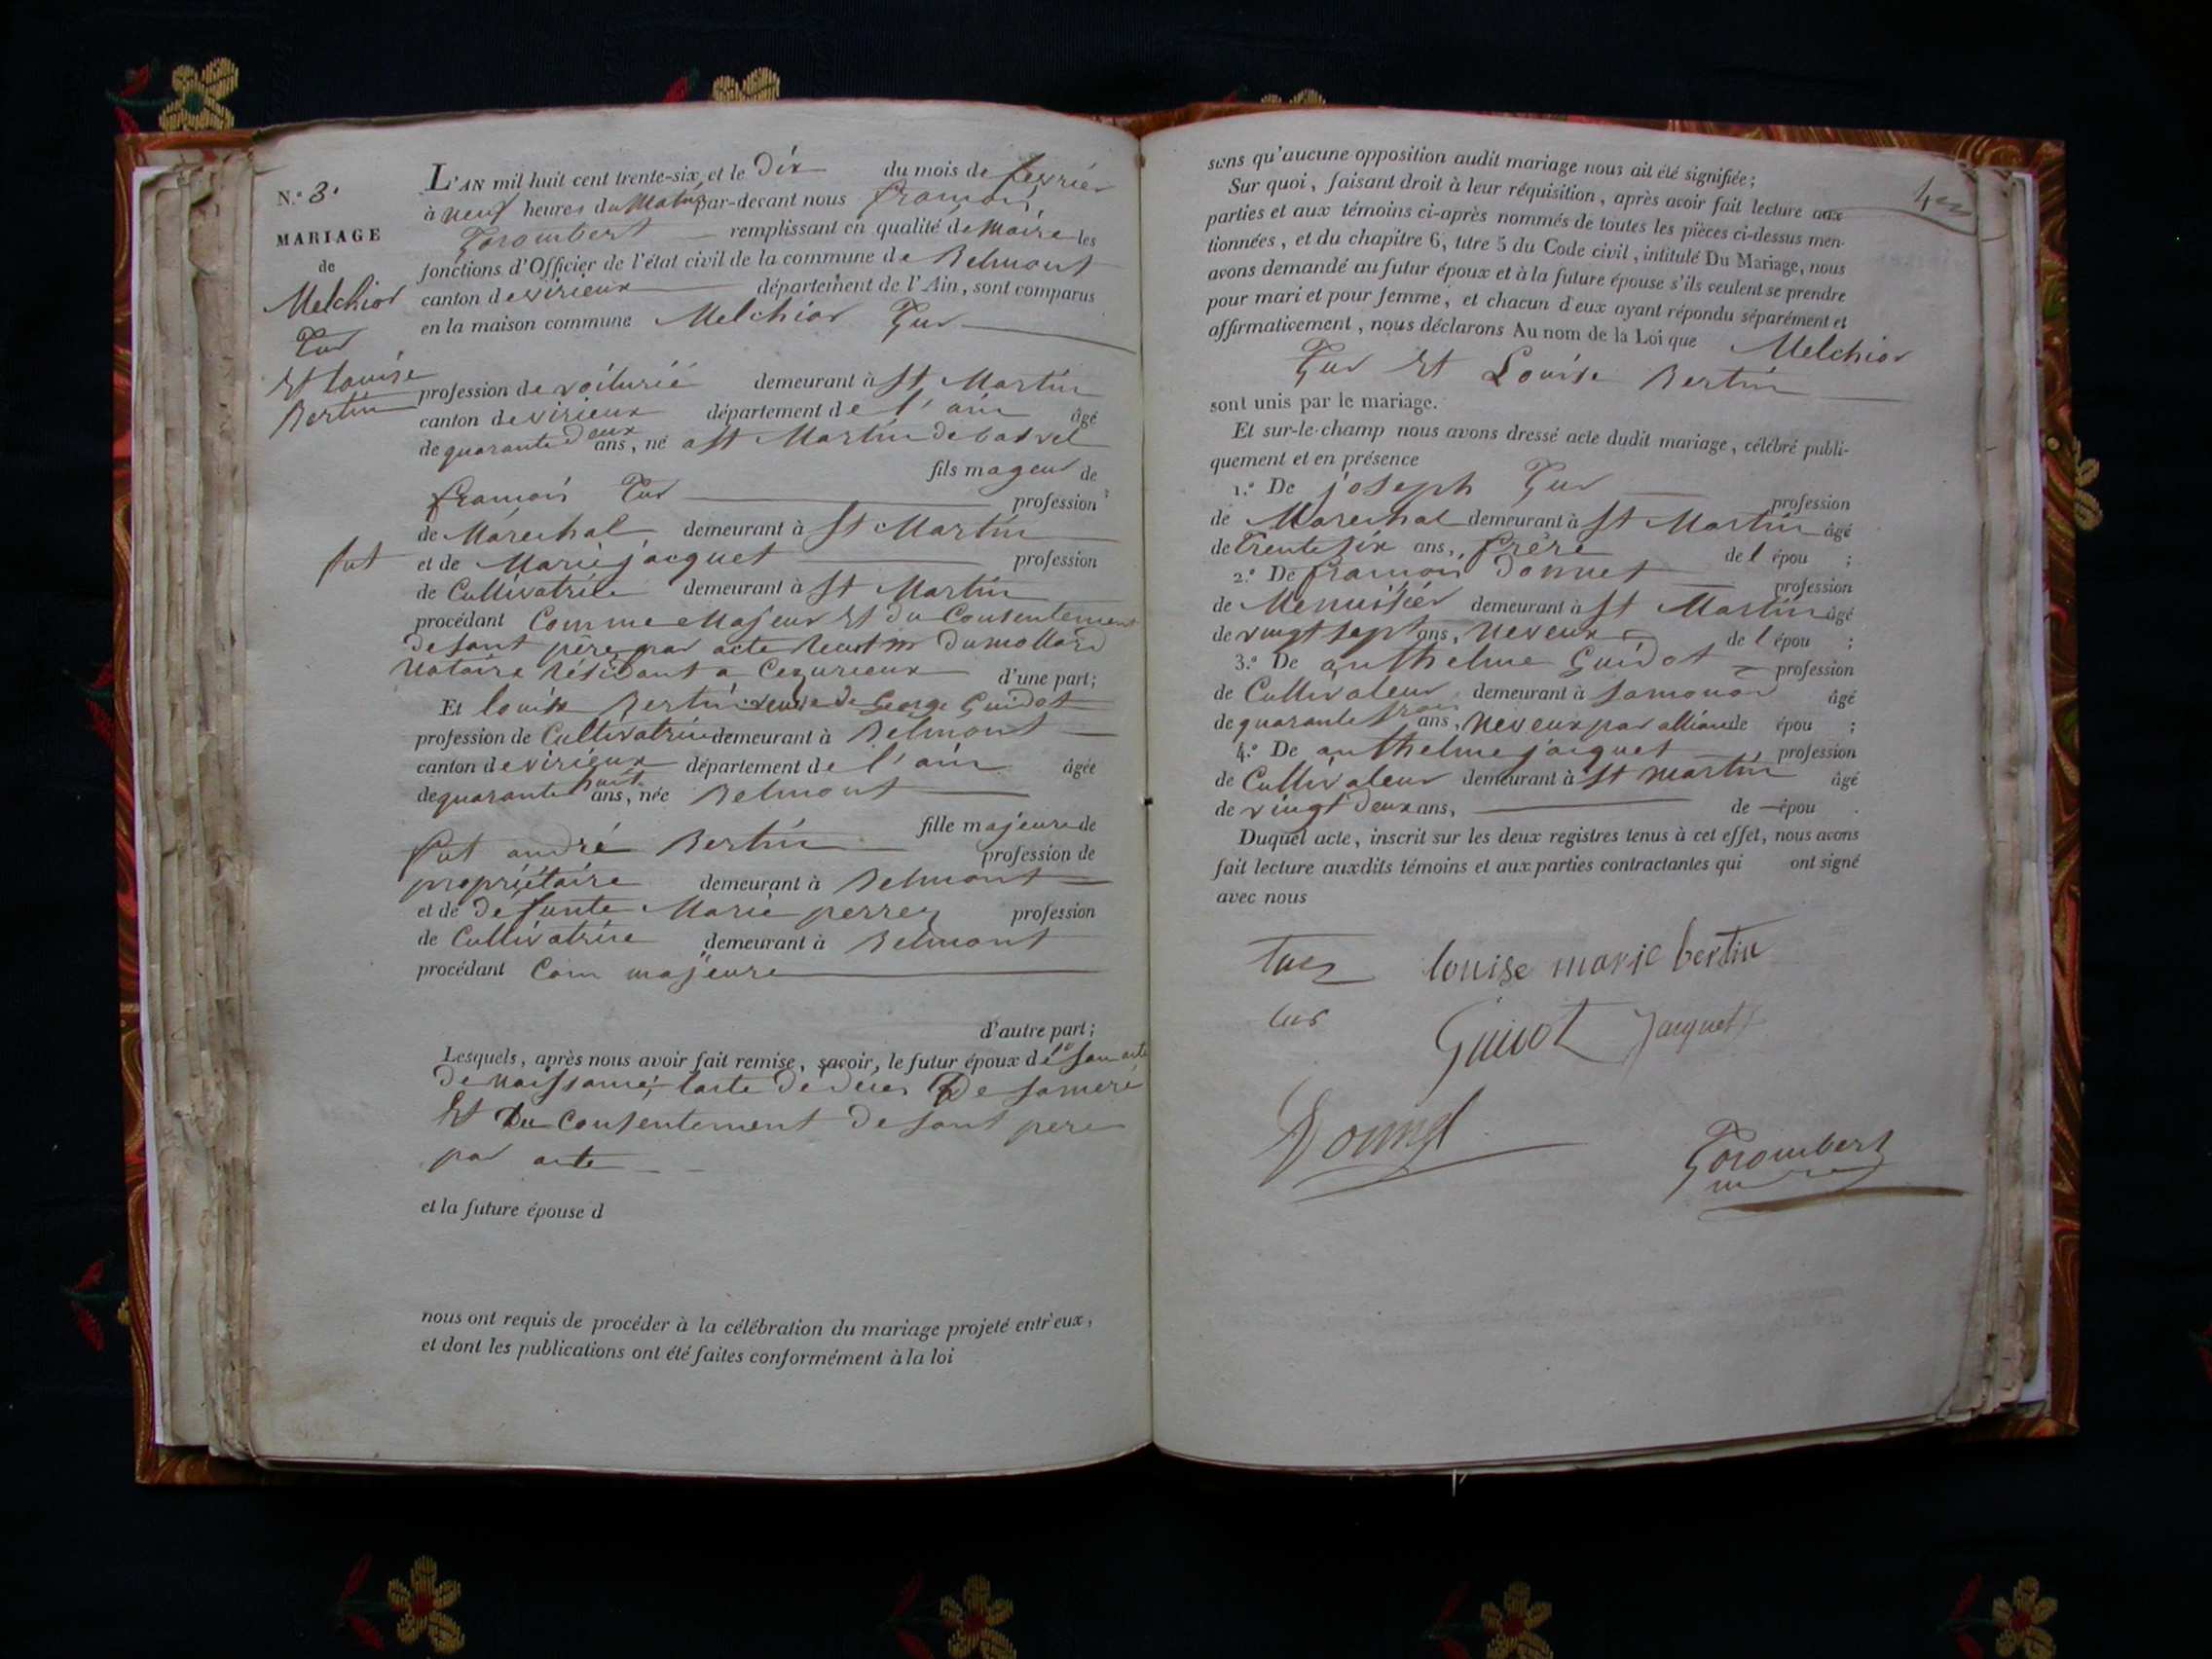 N.º 3.
MARIAGE
de
Melchior
Tur
Et louise
Bertin
L'AN mil huit cent trente-six, et le Dix du mois de fevrier
à neuf heures du Matin par-devant nous françois
Gorombert remplissant en qualité de Maire les
fonctions d'Officier de l'état civil de la commune de Belmont
canton de virieux département de l'Ain, sont comparus
en la maison commune Melchior Tur
profession de voiturié demeurant à St Martin
canton de virieux département de l'ain âgé
de quarante deux ans, né a St Martin de bavel
fils mageur de
françois Tur profession
de Maréchal demeurant à St Martin
fut et de Marie jacquet profession
de Cultivatrice demeurant à St Martin
procédant Comme Majeur Et du Consentement
de sont père par acte Dumollard
Notaire résidant a Cezurieux d'une part;
Et louise Bertin veuve de George Guidot
profession de Cultivatrice demeurant à Belmont
canton de virieux département de l'ain âgée
de quarante huit ans, née Belmont
fille majeure de
fut andré Bertin profession de
propriétaire demeurant à Belmont
et de defunte Marie perret profession
de Cultivatrice demeurant à Belmont
procédant Com majeure
d'autre part;
Lesquels, après nous avoir fait remise, savoir, le futur époux de 1º son acte
de naissance, lacte de deces De sa mere
Et Du Consentement de sont pere
par acte
et la future épouse d
nous ont requis de procéder à la célébration du mariage projeté entr'eux,
et dont les publications ont été faites conformément à la loi
sans qu'aucune opposition audit mariage nous ait été signifiée;
Sur quoi, faisant droit à leur réquisition, après avoir fait lecture aux
parties et aux témoins ci-après nommés de toutes les pièces ci-dessus men-
tionnées, et du chapitre 6, titre 5 du Code civil, intitulé Du Mariage, nous
avons demandé au futur époux et à la future épouse s'ils veulent se prendre
pour mari et pour femme, et chacun d'eux ayant répondu séparément et
affirmativement, nous déclarons Au nom de la Loi que Melchior
Tur Et Louise Bertin
sont unis par le mariage.
Et sur-le-champ nous avons dressé acte dudit mariage, célébré publi-
quement et en présence
1.º De joseph Tur profession
de Marechal demeurant à St Martin âgé
de Trente six ans, frère de l épou ;
2.º De françois Donnet profession
de Menuisier demeurant à St Martin âgé
de vingt sept ans, neveux de l épou ;
3.º De anthelme Guidot profession
de Cultivateur demeurant à Samonod âgé
de quarante trois ans, neveux par alliance de épou ;
4.º De anthelme jacquet profession
de Cultivateur demeurant à St martin âgé
de vingt deux ans, de épou .
Duquel acte, inscrit sur les deux registres tenus à cet effet, nous avons
fait lecture auxdits témoins et aux parties contractantes qui ont signé
avec nous
louise marie bertin
tur
Guidot Jacquet
Donnet
Gorombert